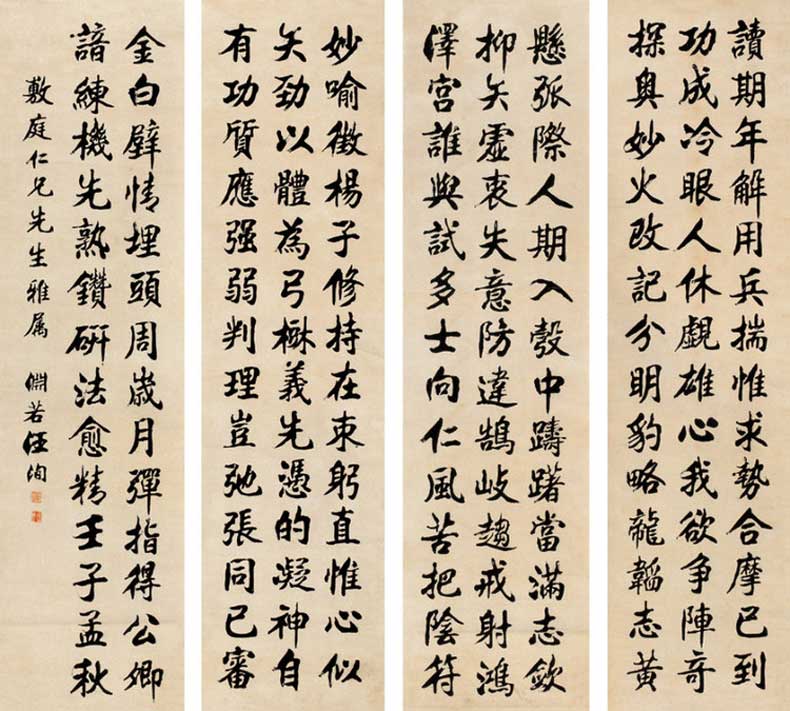 讀期年解用兵揣惟求勢合摩已到
功成冷眼人休覷雄心我欲爭陣奇
探奥妙火改記分明豹略龍韜志黃
懸弧際人期入彀中躊躇當滿志歛
抑矢虛衷失意防違鵠岐趨戒射鴻
澤宮誰與試多士向仁風苦把陰符
妙喻徵楊子修持在束躬直惟心似
矢勁以體為弓楙義先憑的凝神自
有功質應强弱判理豈弛張同已審
金白璧情埋頭周歲月彈指得公卿
諳練機先熟鑽研法愈精壬子孟秋
敷庭仁兄先生雅属 淵若汪洵